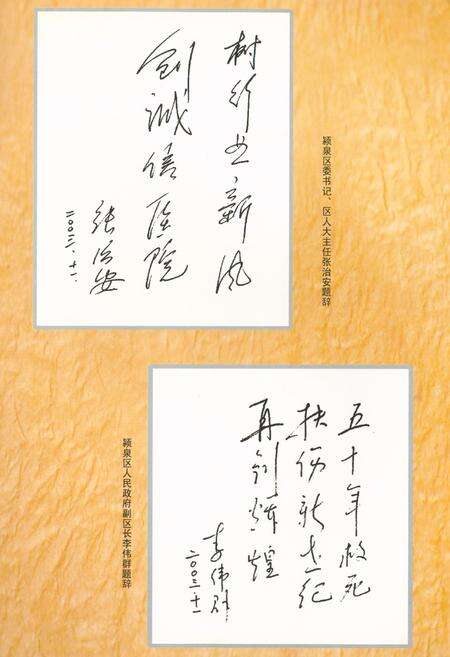 树行业新风
创诚信医院
张治安
二00三.十一.
颍泉区委书记、区人大主任张治安题辞
五十年救死
扶伤新世纪
再创辉煌
李伟群
二00三十一
颍泉区人民政府副区长李伟群题辞